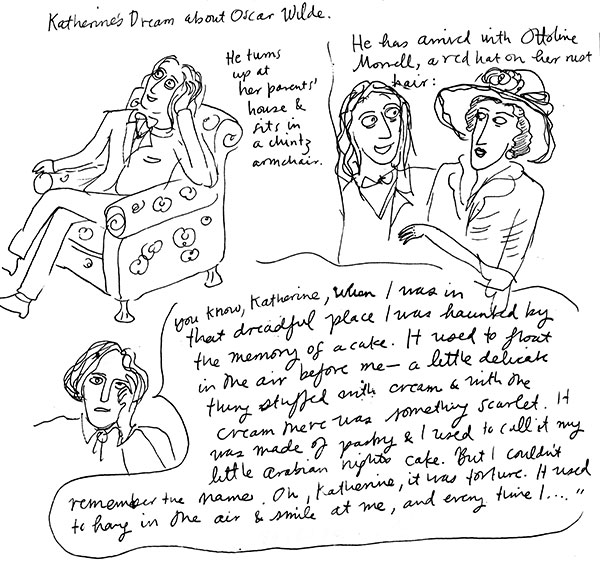 Katherine's Dream about Oscar Wilde.
He turns
up at
her parents'
house &
sits in
a chintz
armchair.
He has arrived with Ottoline
Morrell, a red hat on her rust
hair:
you know, Katherine, when I was in
that dreadful place I was haunted by
the memory of a cake. It used to float
in the air before me – a little delicate
thing stuffed with cream & with the
cream there was something scarlet. It
was made of pastry & I used to call it my
little arabian nights cake. But I couldn't
remember the name. Oh, Katherine, it was torture. It used
to hang in the air & smile at me, and every time I...."